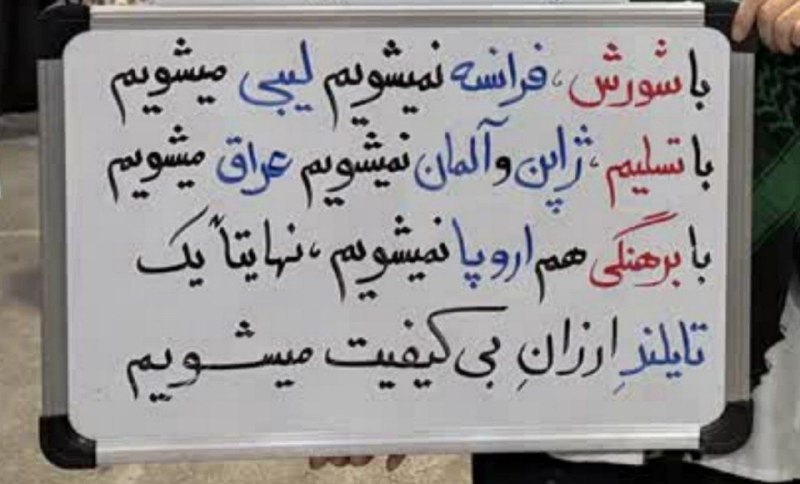 با شورش، فرانسه نمیشویم لیبی میشویم
با تسلیم، ژاپن و آلمان نمیشویم عراق میشویم
با برهنگی هم اروپا نمیشویم، نهایتاً یک
تایلندِ ارزانِ بی کیفیت میشویم